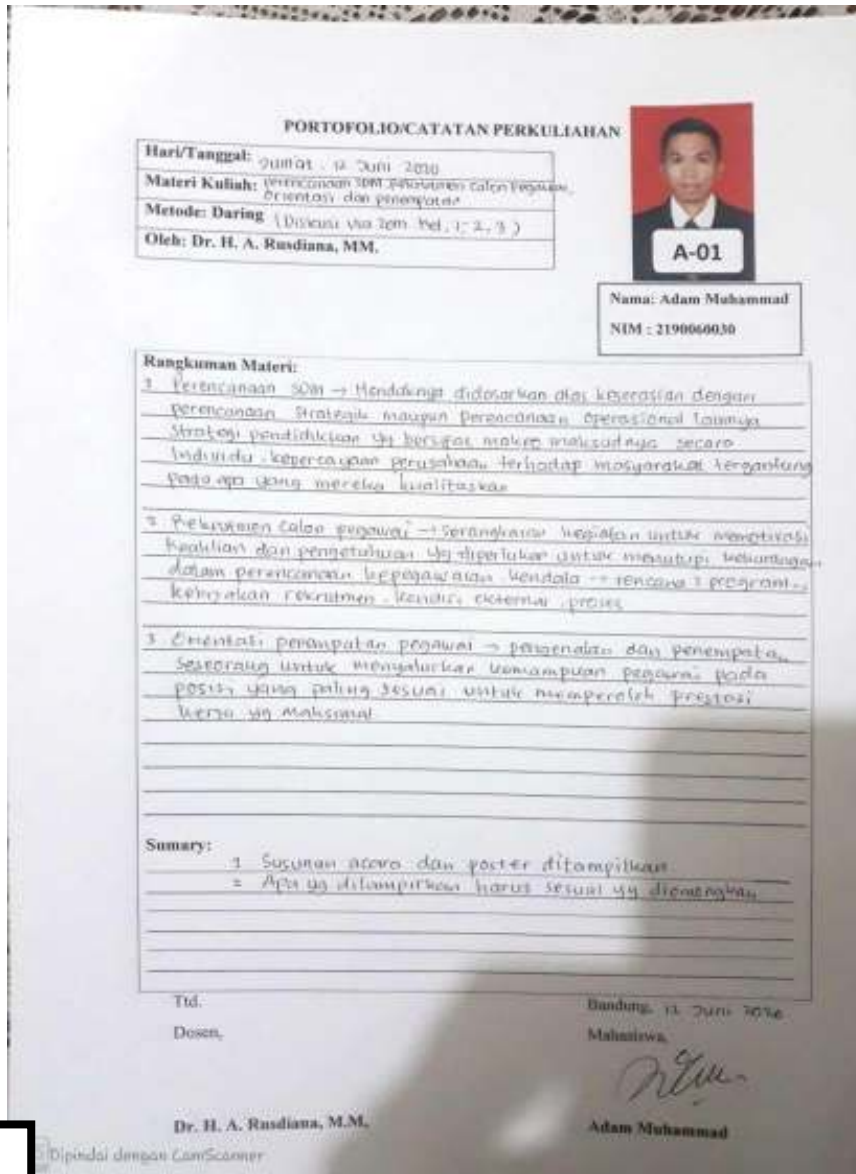 PORTOFOLIO/CATATAN PERKULIAHAN
Hari/Tanggal: Jumat, 12 Juni 2020
Materi Kuliah: Perencanaan SDM, Rekrutmen Calon Pegawai,
Orientasi dan penempatan
Metode: Daring (Diskusi via Zom Kel. 1, 2, 3)
Oleh: Dr. H. A. Rusdiana, MM.
A-01
Nama: Adam Muhammad
NIM : 2190060030
Rangkuman Materi:
1. Perencanaan SDM → Hendaknya didasarkan atas keserasian dengan
perencanaan strategik maupun perencanaan operasional
strategi pendidikan yg bersifat makro maksudnya secara
Individu. kepercayaan perusahaan terhadap masyarakat tergantung
pada apa yang mereka kualitaskan
2. Rekrutmen Calon pegawai → Serangkaian kegiatan untuk memotivasi
keahlian dan pengetahuan yg diperlukan untuk menutupi kekurangan
dalam perencanaan kepegawaian kendala → rencana program
kebijakan rekrutmen, kondisi eksternal, proses
3. Orientasi penempatan pegawai → pengenalan dan penempatan
Seseorang untuk menyalurkan kemampuan pegawai pada
posisi yang paling sesuai untuk memperoleh prestasi
kerja yg Maksimal
Sumary:
1 Susunan acara dan poster ditampilkan
2 Apa yg ditampilkan harus sesuai yg
Ttd.
Bandung, 12 Juni 2020
Dosen,
Mahasiswa,
Dr. H. A. Rusdiana, M.M.
Adam Muhammad
Dipindai dengan CamScanner